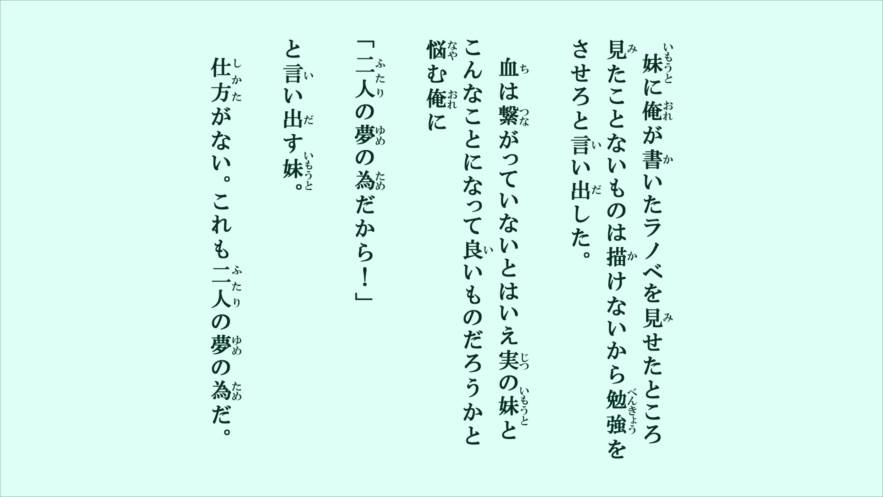 妹に俺が書いたラノベを見せたところ
見たことないものは描けないから勉強を
させろと言い出した。
血は繋がっていないとはいえ実の妹と
こんなことになって良いものだろうかと
悩む俺に
「二人の夢の為だから！」
と言い出す妹。
仕方がない。これも二人の夢の為だ。